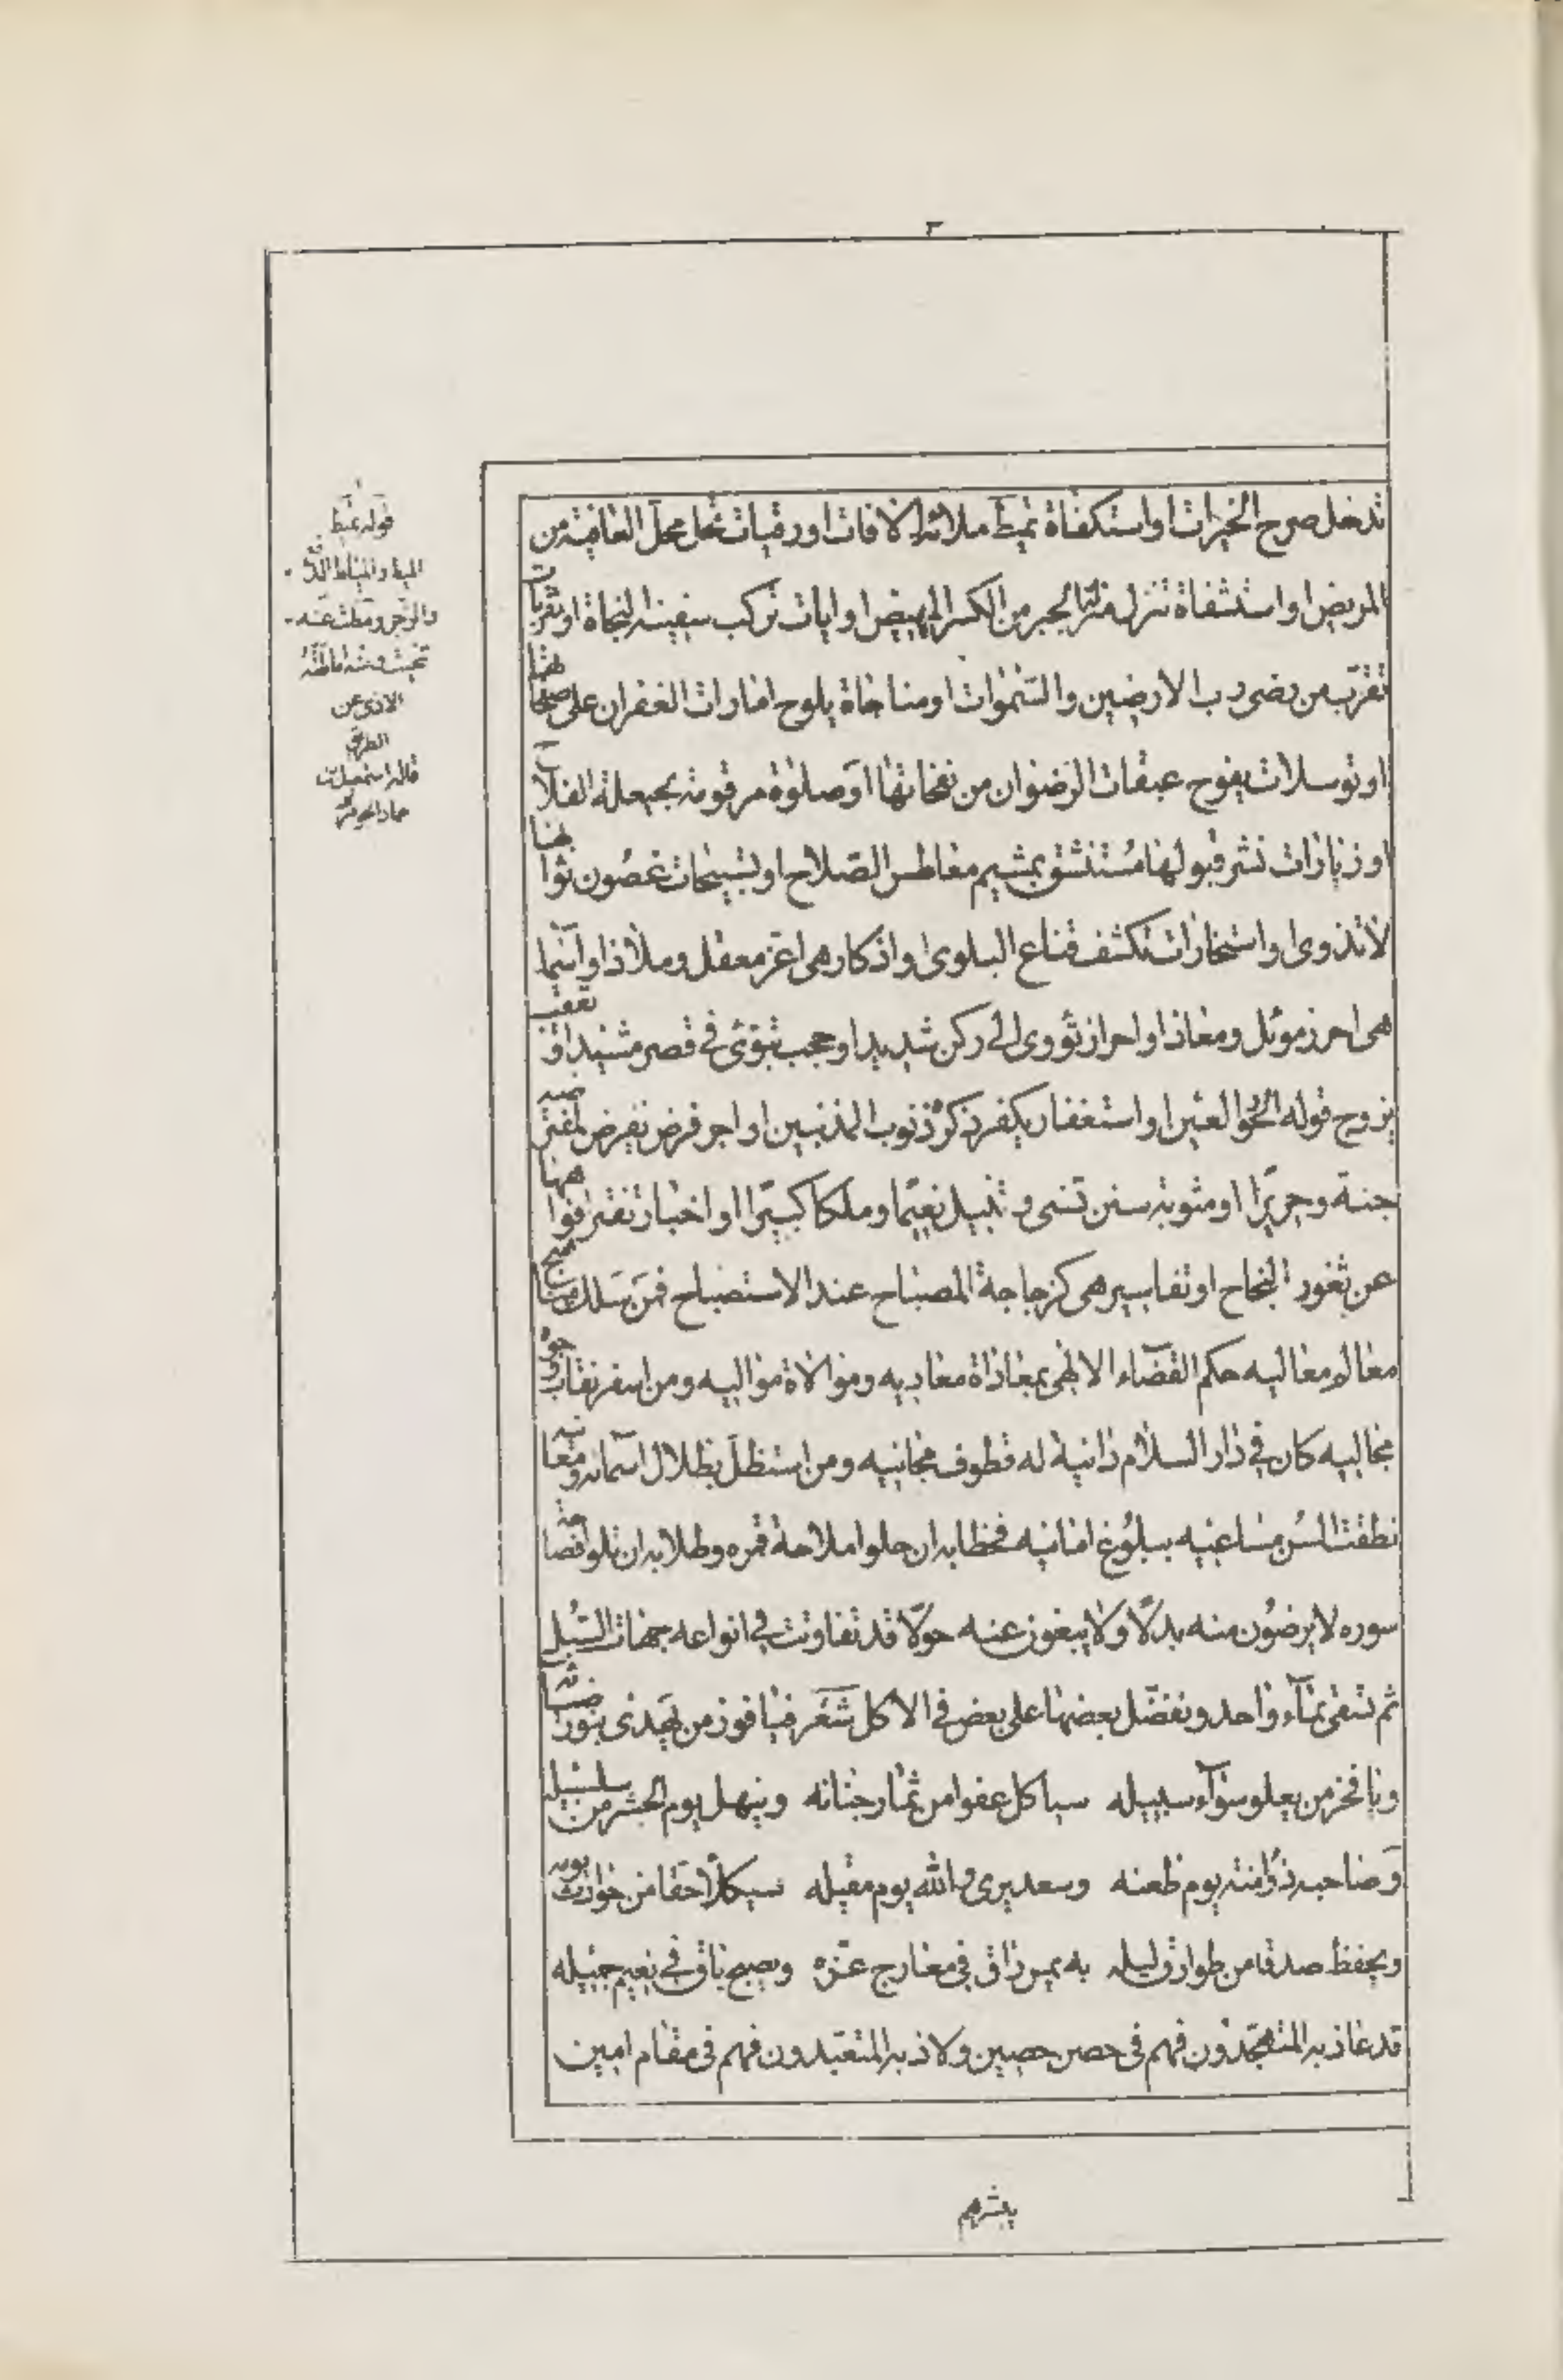 ٣
تدخل صرح الخيرات او استكفاة تميط ملائه الافات او رقيات تحل محل العافية من
المريض او استشفاة تنزل منزلة الجبر من الكسر المهيض او ايات تركب سفينة النجاة او تقربات
تقرب من رضى رب الارضين والسموات او مناجاة يلوح امارات الغفران على صفحاتها
او توسلات يفوح عبقات الرضوان من نفحاتها او صلوة مرقومة بحيعلة الفلاح
او زيارات نشر قبولها مستنشق بمشيم معاطس الصلاح او تسبيحات غصون ثوابها
لا تذوى او استخارات تكشف قناع البلوى او اذكار هى اعز معقل وملاذ او اسما
هى احرز موئل ومعاذ او احراز تؤوى الى ركن شديد او حجب تبوئ فى قصر مشيد او تعقيب
يزوج قوله الحور العين او استغفار يكفر ذكره ذنوب المذنبين او اجر فرض يفرض لمفترضيه
جنة وحريرا او مثوبة سنن تسنى وتنيل نعيما وملكا كبيرا او اخبار تفتر افواهها
عن ثغور النجاح او تفاسير هى كزجاجة المصباح عند الاستصباح فمن سلك منهج
معالم معاليه حكم القضاء الالهى بمعاداة معاديه وموالاة مواليه ومن اسفر نقاب وجوه
مجاليه كان فى دار السلام دانية له قطوف مجانيه ومن استظل بظلال اسمائه ومعانيه
نطقت السن مساعيه ببلوغ امانيه فخطابه ان جلوا ملاحة قمره وطلابه ان تلوا فصاحة
سوره لا يرضون منه بدلا ولا يبغون عنه حولا قد تفاوتت فى انواعه جهات السبل
ثم تسقى بماء واحد ونفضل بعضها على بعض فى الاكل شعر فيا فوز من يهدى بنور ضيائه
ويا فخر من يعلو سواء سبيله سيأكل عفوا من ثمار جنانه وينهل يوم الحشر من سلسبيله
وصاحبه ذو امنة يوم ظعنه وسعد يرى والله يوم مقيله سيكلأ حقا من حوادث يومه
ويحفظ صدقا من طوارق ليله به يمس راق فى معارج عزه ويصبح باق فى نعيم جميله
قد عاذ به المتهجدون فهم فى حصن حصين ولاذ به المتعبدون فهم فى مقام امين
يبشرهم
قوله تميط
الميط والمياط الدفع
والزجر ومطت عنه
تنحيت ومنه اماطة
الاذى عن
الطريق
قاله اسمعيل بن
حماد الجوهرى